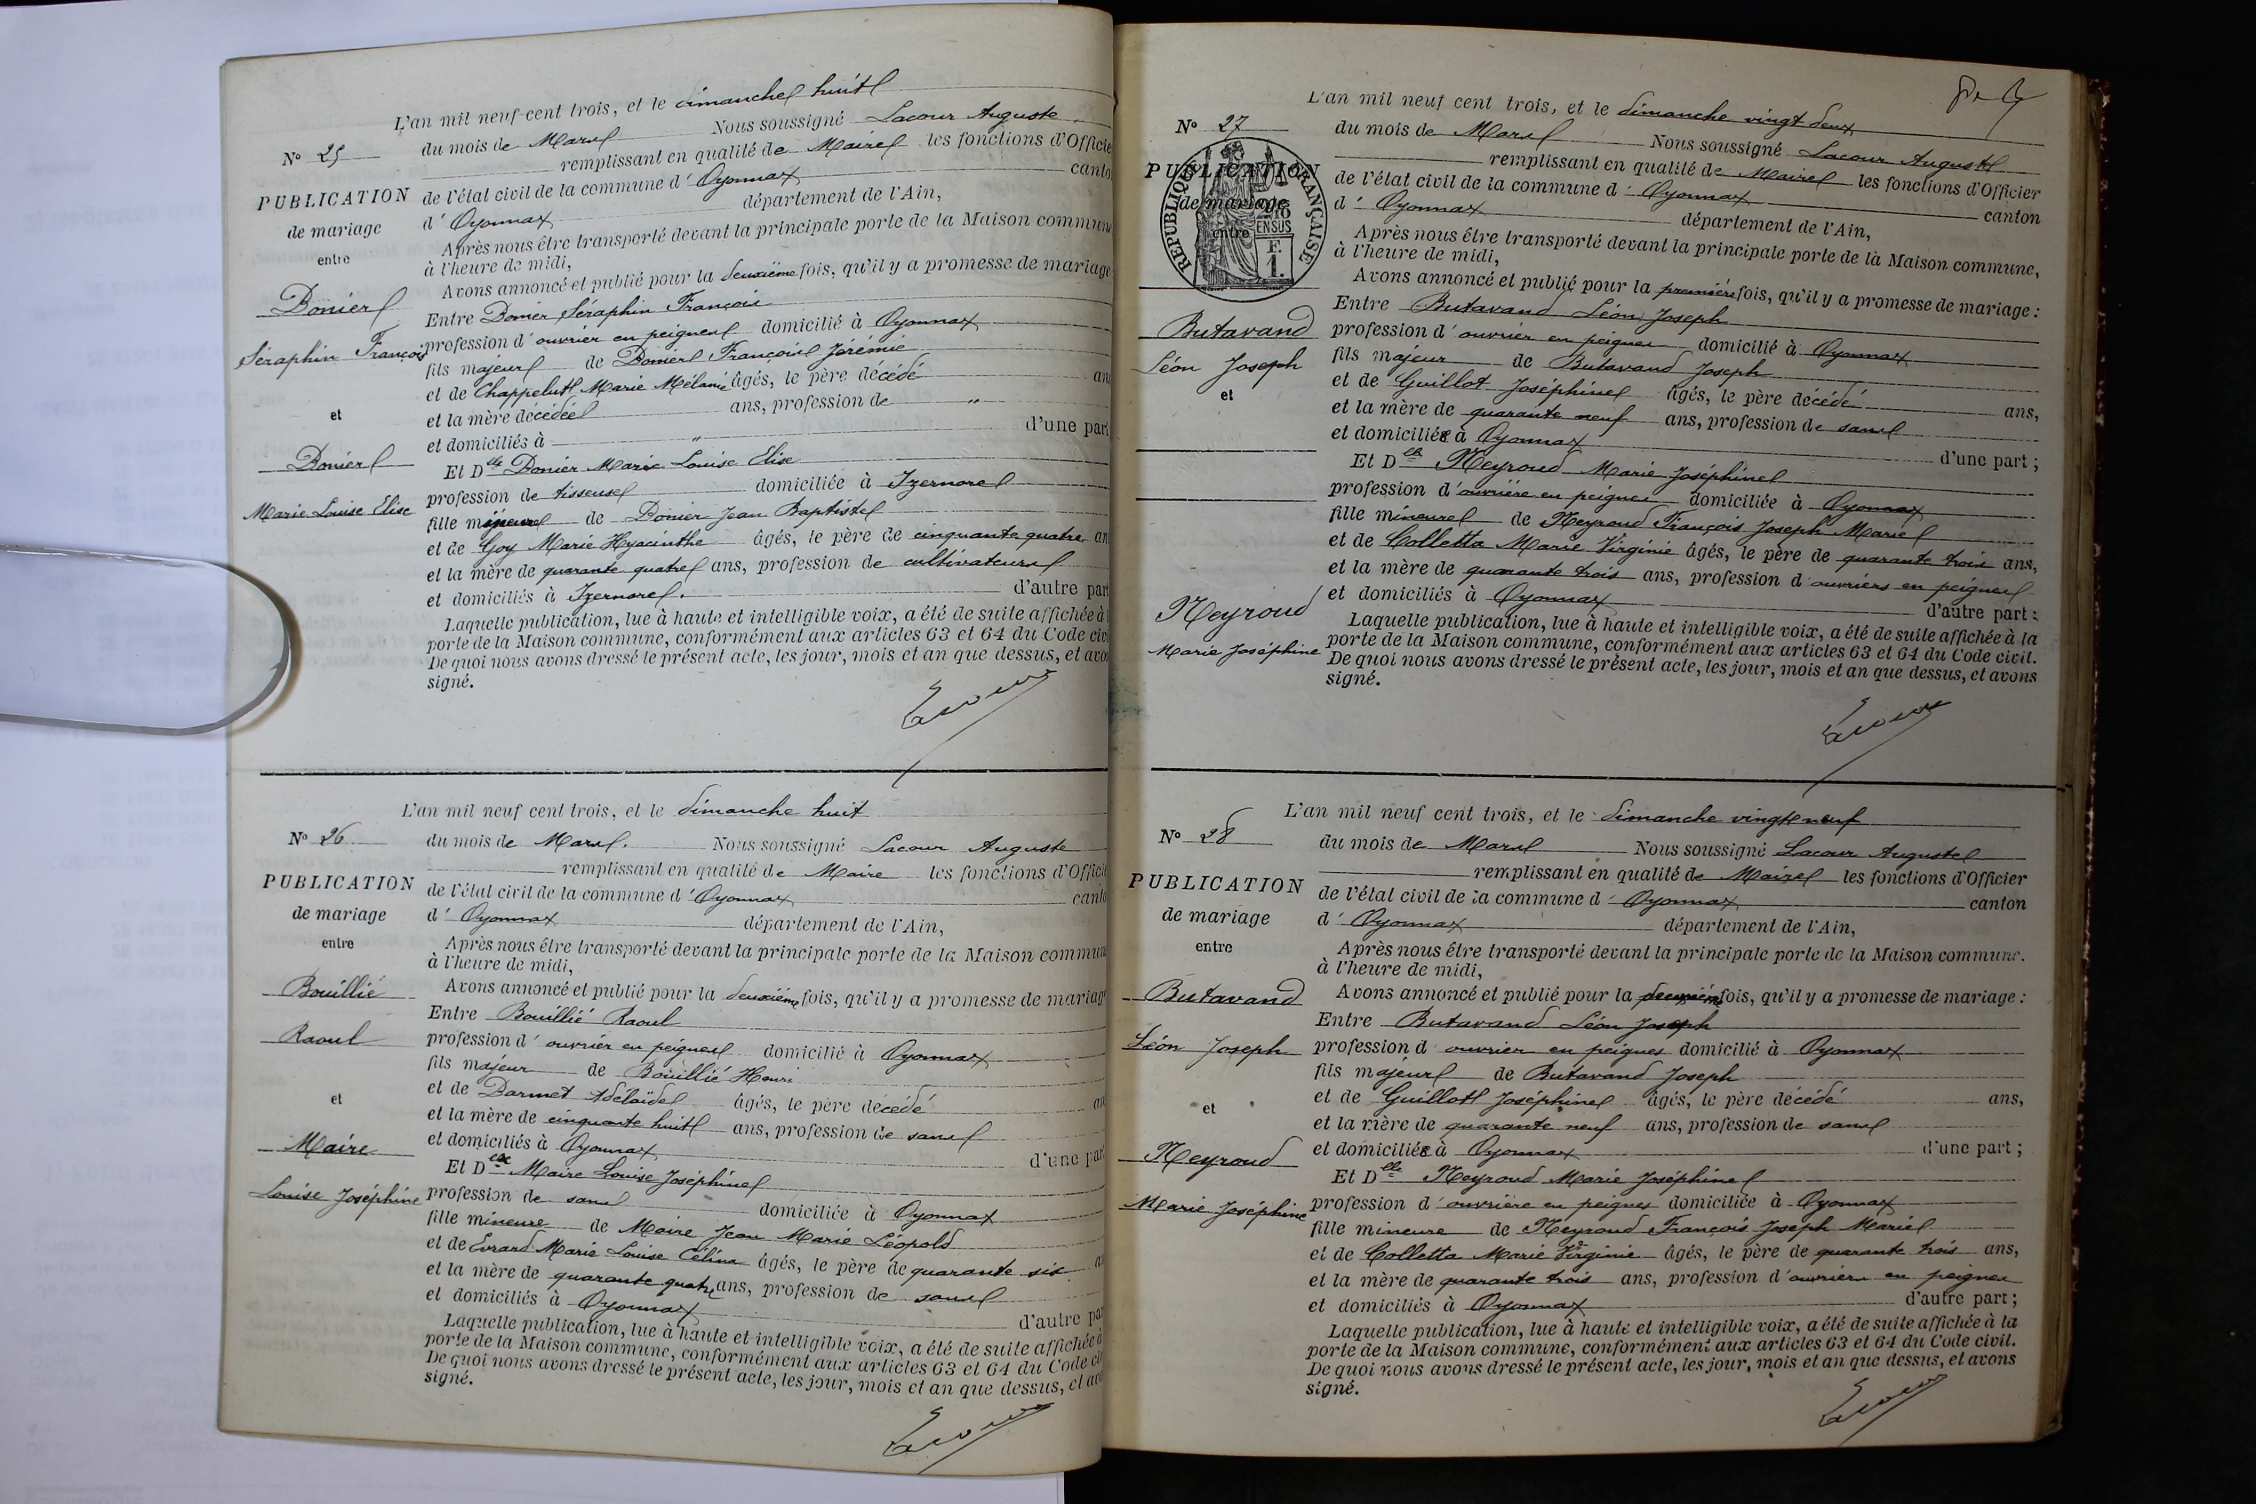 L'an mil neuf cent trois, et le dimanche huit
Nº 25
du mois de Mars Nous soussigné Lacour Auguste
remplissant en qualité de Maire les fonctions d'Officie
PUBLICATION
de l'état civil de la commune d' Oyonnax canto
de mariage
d' Oyonnax département de l'Ain,
entre
Après nous être transporté devant la principale porte de la Maison commune
à l'heure de midi,
Avons annoncé et publié pour la deuxième fois, qu'il y a promesse de mariage
Donier
Entre Donier Séraphin François
Séraphin François
profession d' ouvrier en peignes domicilié à Oyonnax
fils majeur de Donier François Jérémie
et de Chappelut Marie Mélanie âgés, le père décédé an
et
et la mère décédée ans, profession de "
et domiciliés à " d'une part
Donier
Et Dlle Donier Marie Louise Elise
Marie Louise Elise
profession de tisseuse domiciliée à Izernore
fille mineure de Donier Jean Baptiste
et de Goy Marie Hyacinthe âgés, le père de cinquante quatre an
et la mère de quarante quatre ans, profession de cultivateurs
et domiciliés à Izernore. d'autre par
Laquelle publication, lue à haute et intelligible voix, a été de suite affichée à l
porte de la Maison commune, conformément aux articles 63 et 64 du Code civ
De quoi nous avons dressé le présent acte, les jour, mois et an que dessus, et avo
signé.
Lacour
L'an mil neuf cent trois, et le dimanche huit
Nº 26
du mois de Mars. Nous soussigné Lacour Auguste
remplissant en qualité de Maire les fonctions d'Offici
PUBLICATION
de l'état civil de la commune d' Oyonnax canto
de mariage
d' Oyonnax département de l'Ain,
entre
Après nous être transporté devant la principale porte de la Maison commun
à l'heure de midi,
Bouillié
Avons annoncé et publié pour la deuxième fois, qu'il y a promesse de mariage
Entre Bouillié Raoul
Raoul
profession d' ouvrier en peignes domicilié à Oyonnax
fils majeur de Bouillié Henri
et de Darmet Adélaïde âgés, le père décédé an
et
et la mère de cinquante huit ans, profession de sans
et domiciliés à Oyonnax d'une par
Maire
Et Dlle Maire Louise Joséphine
Louise Joséphine
profession de sans domiciliée à Oyonnax
fille mineure de Maire Jean Marie Léopold
et de Evrard Marie Louise Célina âgés, le père de quarante six a
et la mère de quarante quatre ans, profession de sans
et domiciliés à Oyonnax d'autre par
Laquelle publication, lue à haute et intelligible voix, a été de suite affichée à
porte de la Maison commune, conformément aux articles 63 et 64 du Code ci
De quoi nous avons dressé le présent acte, les jour, mois et an que dessus, et avo
signé.
Lacour
L'an mil neuf cent trois, et le dimanche vingt deux
Nº 27
du mois de Mars Nous soussigné Lacour Auguste
remplissant en qualité de Maire les fonctions d'Officier
PUBLICATION
de l'état civil de la commune d' Oyonnax canton
de mariage
d' Oyonnax département de l'Ain,
entre
RÉPUBLIQUE FRANÇAISE
EN SUS
F.
1.
Après nous être transporté devant la principale porte de la Maison commune,
à l'heure de midi,
Avons annoncé et publié pour la première fois, qu'il y a promesse de mariage :
Entre Butavand Léon Joseph
Butavand
profession d' ouvrier en peignes domicilié à Oyonnax
Léon Joseph
fils majeur de Butavand Joseph
et de Guillot Joséphine âgés, le père décédé ans,
et
et la mère de quarante neuf ans, profession de sans
et domiciliée à Oyonnax d'une part ;
Et Dlle Neyroud Marie Joséphine
profession d' ouvrière en peignes domiciliée à Oyonnax
fille mineure de Neyroud François Joseph Marie
et de Colletta Marie Virginie âgés, le père de quarante trois ans,
et la mère de quarante trois ans, profession d' ouvriers en peignes
et domiciliés à Oyonnax d'autre part :
Neyroud
Marie Joséphine
Laquelle publication, lue à haute et intelligible voix, a été de suite affichée à la
porte de la Maison commune, conformément aux articles 63 et 64 du Code civil.
De quoi nous avons dressé le présent acte, les jour, mois et an que dessus, et avons
signé.
Lacour
L'an mil neuf cent trois, et le dimanche vingt neuf
Nº 28
du mois de Mars Nous soussigné Lacour Auguste
remplissant en qualité de Maire les fonctions d'Officier
PUBLICATION
de l'état civil de la commune d' Oyonnax canton
de mariage
d' Oyonnax département de l'Ain,
entre
Après nous être transporté devant la principale porte de la Maison commune.
à l'heure de midi,
Butavand
Avons annoncé et publié pour la deuxième fois, qu'il y a promesse de mariage :
Entre Butavand Léon Joseph
Léon Joseph
profession d' ouvrier en peignes domicilié à Oyonnax
fils majeur de Butavand Joseph
et de Guillot Joséphine âgés, le père décédé ans,
et
et la mère de quarante neuf ans, profession de sans
et domiciliée à Oyonnax d'une part ;
Neyroud
Et Dlle Neyroud Marie Joséphine
Marie Joséphine
profession d' ouvrière en peignes domiciliée à Oyonnax
fille mineure de Neyroud François Joseph Marie
et de Colletta Marie Virginie âgés, le père de quarante trois ans,
et la mère de quarante trois ans, profession d' ouvriers en peignes
et domiciliés à Oyonnax d'autre part ;
Laquelle publication, lue à haute et intelligible voix, a été de suite affichée à la
porte de la Maison commune, conformément aux articles 63 et 64 du Code civil.
De quoi nous avons dressé le présent acte, les jour, mois et an que dessus, et avons
signé.
Lacour